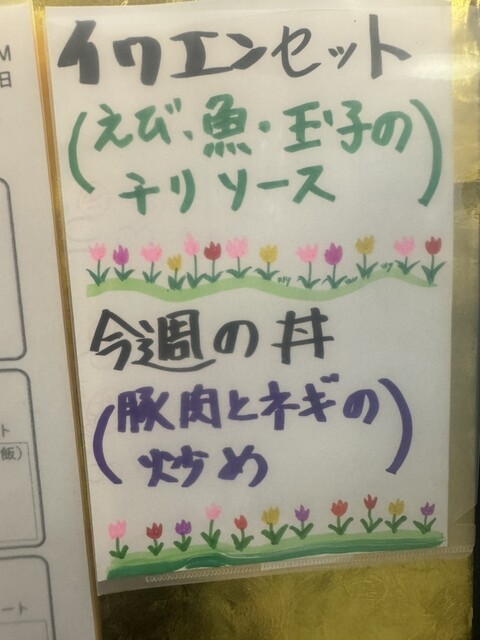 イワエンセット
(えび、魚・玉子の
チリソース)
今週の丼
(豚肉とネギの
炒め)
M
日
ト
飯)
ート